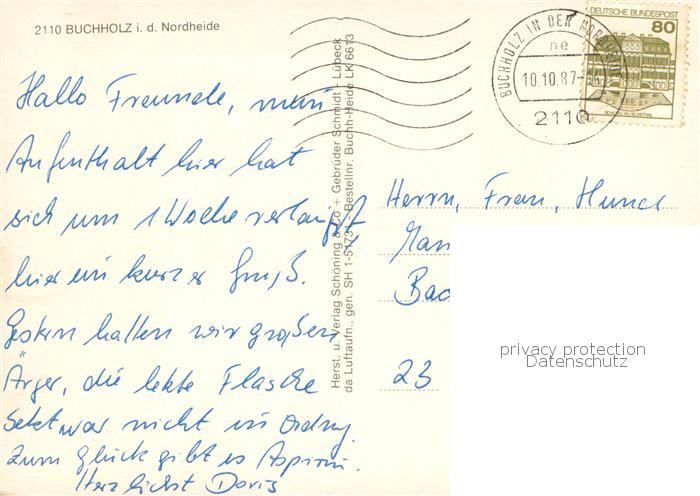 2110 BUCHHOLZ i. d. Nordheide
Hallo Freunde, mein
Aufenthalt hier hat
sich um 1 Woche verlängt,
hier ein kurzer Gruß.
Gestern hatten wir großen
Ärger, die letzte Flasche
Sekt war nicht in Ordng.
Zum Glück gibt es Aspirin.
Herzlichst Doris
Herst. u. Verlag Schöning & Co + Gebrüder Schmidt - Lübeck
da Luftaufn., gen. SH 1-5173 Bestellnr. Buchh-Heide LK 6613
BUCHHOLZ IN DER NORDHEIDE
ne
10.10.87
2110
DEUTSCHE BUNDESPOST
80
Herrn, Frau, Hund
23
privacy protection
Datenschutz